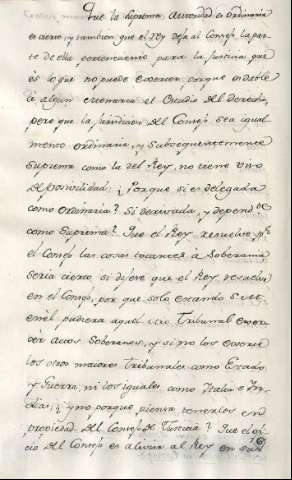 Que la suprema autoridad es ordinaria
es cierto, y tambien que el Rey deja al Consejo la par-
te de ella concerniente para la Justicia que
es lo que no puede exercer, porque indeble
à algun el Oficio del derecho,
pero que la jurisdicion del Consejo sea igual
mente ordinaria, y subsequentemente
suprema como la del Rey, no tiene viso
de posivilidad: ¿Porque si es delegada
como ordinaria? Si derivada, y depend.te
como Suprema? Que el Rey resuelve p.r
el Consejo las cosas tocantes à Soberania
seria cierto, si dijere que el Rey resuelve
en el Consejo, por que solo quando S.
en el, pudiera aquel Tribunal exer-
cer actos Soberanos, y si no los exercen
los otros maiores Tribunales como Estado,
y Guerra, ni los iguales como Italia è In-
dias; ¿yno porque piensa tenerlos en
propiedad el Consejo de Justicia? Que el ofi-
cio del Consejo es aliviar al Rey en